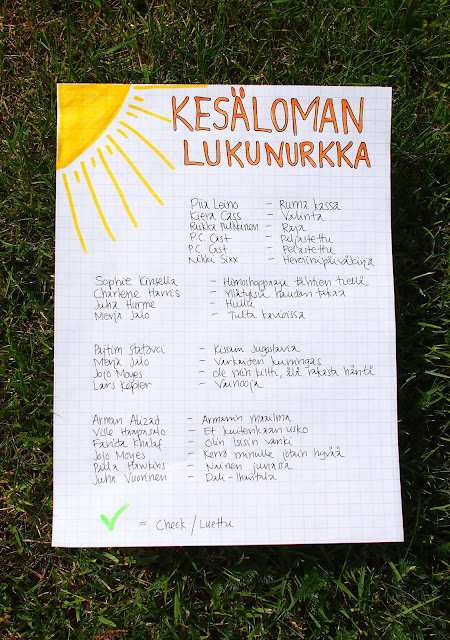 KESÄLOMAN
LUKUNURKKA
Piia Leino - Ruma kassa
Kiera Cass - Valinta
Riikka Pulkkinen - Raja
P.C. Cast - Paljastettu
P.C. Cast - Pelastettu
Nikki Sixx - Heroiinipäiväkirja
Sophie Kinsella - Himoshoppaaja tähtien tiellä
Charlene Harris - Yllätyksiä haudan takaa
Juha Hurme - Hullu
Merja Jalo - Tulta kavioissa
Pajtim Statovci - Kissani Jugoslavia
Merja Jalo - Varkaiden kuningas
Jojo Moyes - ole niin kiltti, älä rakasta häntä
Lars Kepler - Vainooja
Arman Alizad - Armanin maailma
Ville Haapasalo - Et kuitenkaan usko
Farida Khalaf - Olin Isisin vanki
Jojo Moyes - Kerro minulle jotain hyvää
Paula Hawkins - Nainen junassa
Juha Vuorinen - Dali-
= Check / Luettu